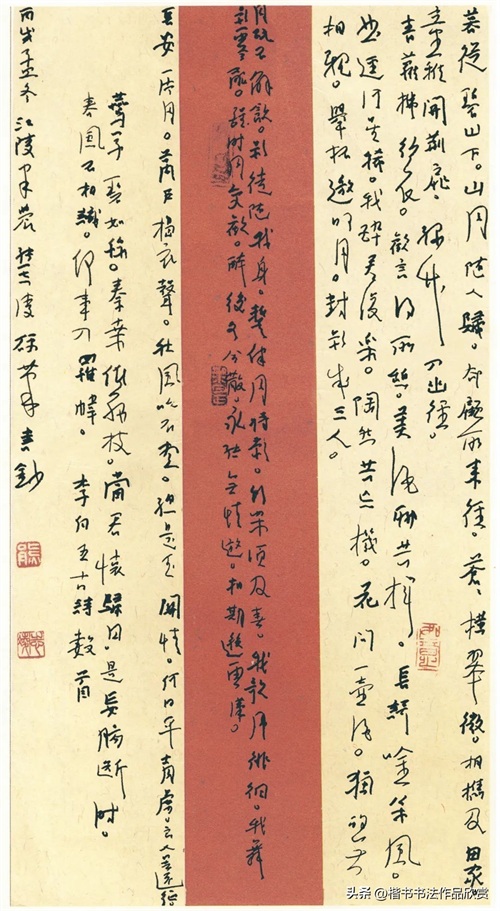 暮從碧山下。山月隨人歸。卻顧所來徑。蒼、橫翠微。相攜及田家。
童稚開荊扉。綠竹入幽徑。
青蘿拂行衣。歡言得所憩。美酒聊共揮。長歌吟松風。
曲盡河星稀。我醉君復樂。陶然共忘機。花間一壺酒。獨酌無
相親。舉杯邀明月。對影成三人。
月既不解飲。影徒隨我身。暫伴月將影。行樂須及春。我歌月徘徊。我舞
影零亂。醒時同交歡。醉後各分散。永結無情遊。相期邈雲漢。
長安一片月。萬戶擣衣聲。秋風吹不盡。總是玉關情。何日平胡虜。良人罷遠征
燕草碧如絲。秦桑低綠枝。當君懷歸日。是妾腸斷時。
春風不相識。何事入羅幃。李白五古詩數首
丙戌孟冬江陵 書鈔
头条 @楷书书法作品欣赏